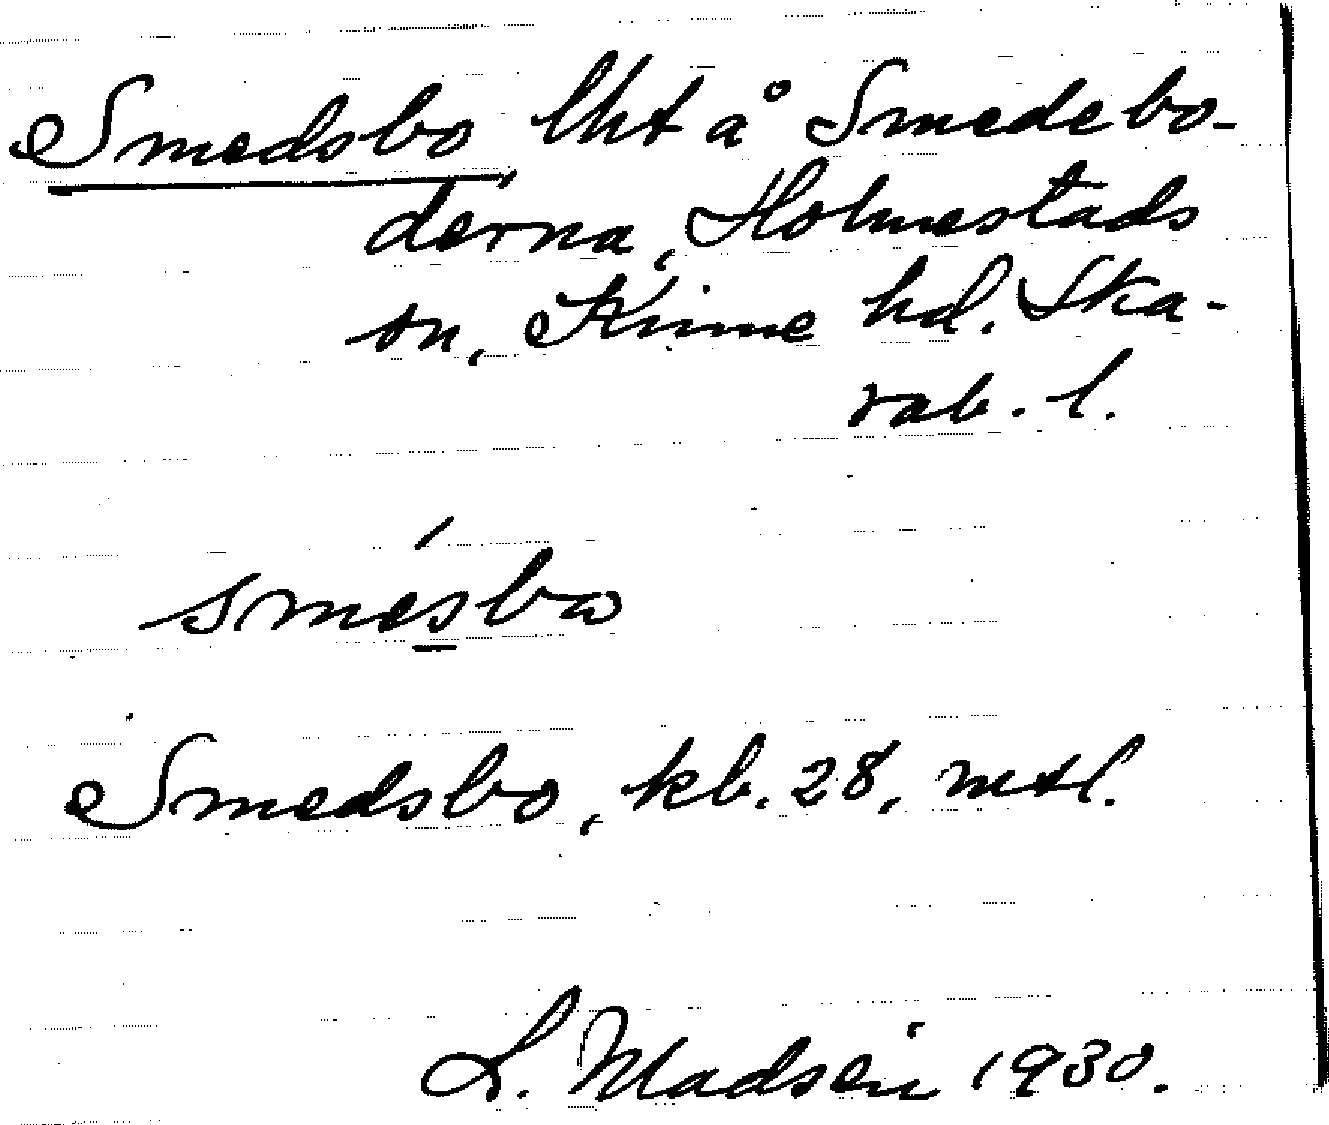 Smedsbo lht å Smedebo-
derna, Holmestads
sn, Kinne hd. Ska-
rab. l.
smésbω
Smedsbo, kb. 28, mtl.
L. Madsén 1930.